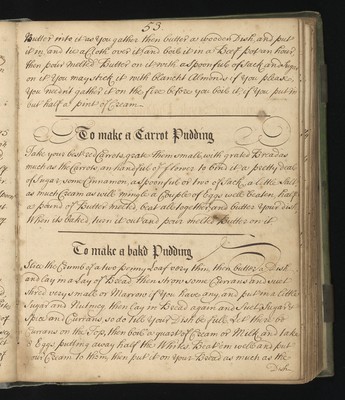 53
Butter into it as You gather then butter a wooden Dish, and put
it in and tie a Cloth over it and boile it in a Beef pot an hour
then pour melted Butter on it with a spoonfull of sack and Sugar
on it You may stick it with blancht Almonds if you please
You needn't gather it on the fire before you boile it if you put in
but half a pint of Cream
To make a Carrot Pudding
Take your best red Carrots, grate them small, with grated Bread as
much as the Carrots, an handfull of flower to bind it a pretty deal
of Sugar some Cinnamon, a spoonfull or two of Sack, a little Salt
as much Cream as will mingle it Couple of Eggs well beaten, half
a pound of Butter melted, beat all together, and butter Your dish
When its baked, turn it out and pour melted butter on it
To make a bakd Pudding
Slice the Crumb of a two penny Loaf very thin then butter a Dish
and lay in a Lay of Bread then strow some Currans and suet
shred very small or Marrow if You have any, and put on a little
Sugar and Nutmeg then lay on Bread again and Suet, Sugar
Spice and Currans, so do till Your Dish be full Let there be
Currans on the Top, then boile a quart of Cream or Milk and take
8 Eggs putting away half the Whites Beat em well and put
our Cream to them then put it on Your Bread as much as the
Dish